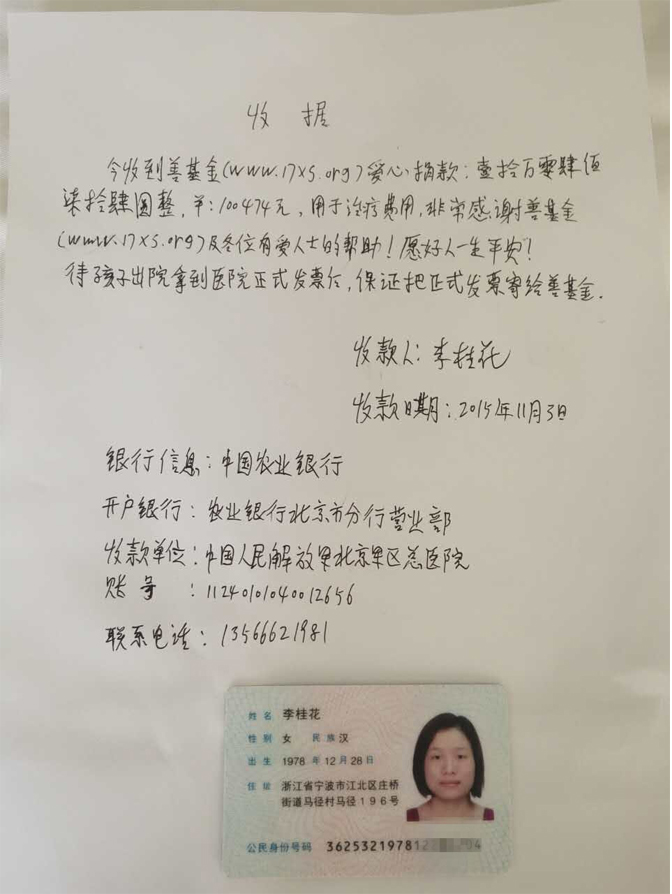 收 据
今收到善基金(www.17xs.org)爱心捐款:壹拾万零肆佰
柒拾肆圆整,￥:100474元,用于治疗费用,非常感谢善基金
(www.17xs.org)及各位有爱人士的帮助!愿好人一生平安!
待孩子出院拿到医院正式发票后,保证把正式发票寄给善基金.
收款人:李桂花
收款日期:2015年11月3日
银行信息:中国农业银行
开户银行:农业银行北京市分行营业部
收款单位:中国人民解放军北京军区总医院
账号:11240101040012656
联系电话:13566621981
姓名 李桂花
性别 女 民族 汉
出生 1978 年 12 月 28 日
住址 浙江省宁波市江北区庄桥
街道马径村马径196号
公民身份号码 362532197812